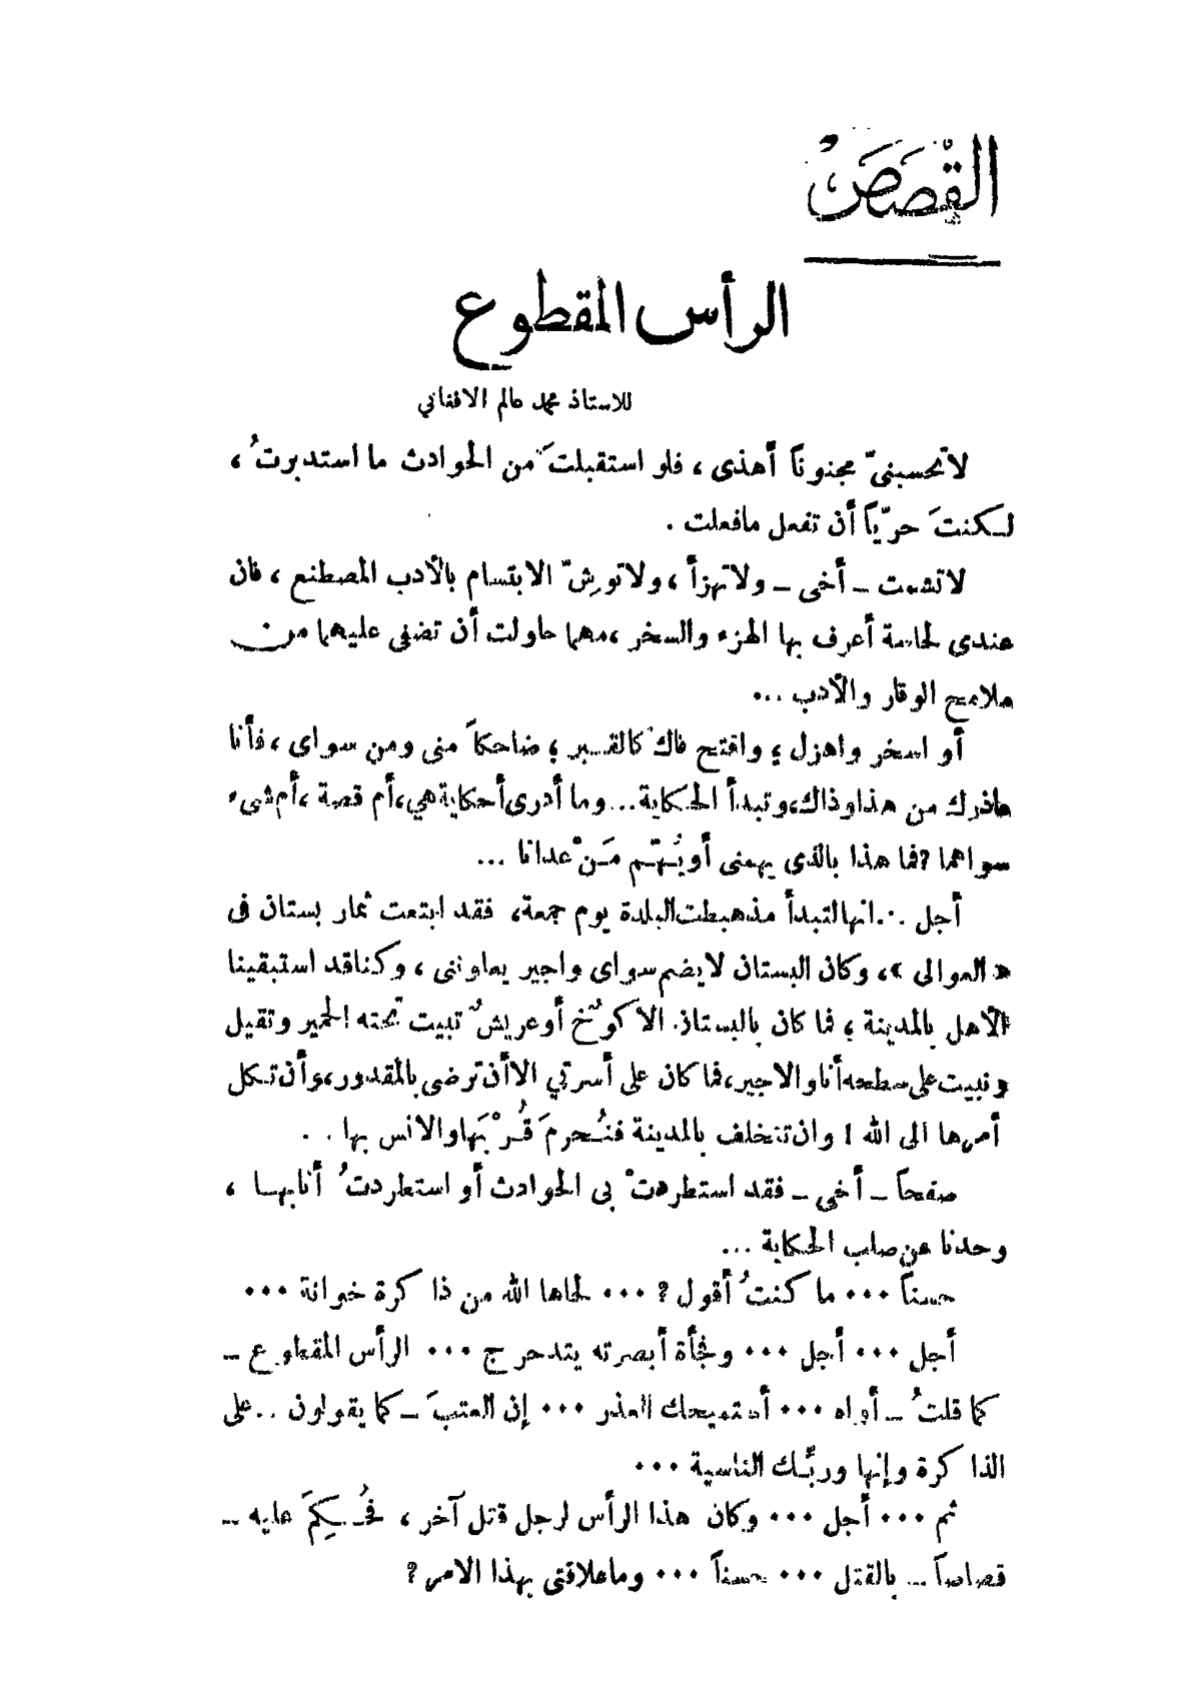 القصص
الرأس المقطوع
للاستاذ محمد عالم الافغاني
لا تحسبنيّ مجنوناً أهذى ، فلو استقبلتَ من الحوادث ما استدبرتُ ،
لكنتَ حرّياً أن تفعل مافعلت .
لا تشمت ــ أخى ــ ولا تهزأ ، ولا تورِشّ الابتسام بالأدب المصطنع ، فان
عندى لحاسة أعرف بها الهزء والسخر ، مهما حاولت أن تضفى عليهما من
ملامح الوقار والأدب ...
أو اسخر واهزل ؛ وافتح فاك كالقبر ؛ ضاحكاً منى ومن سواى ، فأنا
عاذرك من هذا وذاك، وتبدأ الحكاية... وما أدرى أحكاية هي، أم قصة ، أم شىء
سواهما ? فما هذا بالذى يهمنى أو يُهمّ مَنْ عدانا ...
أجل ... انها لتبدأ مذ هبطت البلدة يوم جمعة، فقد ابتعت ثمار بستان فى
« العوالى »، وكان البستان لا يضم سواى واجير يعاوننى ، وكنا قد استبقينا
الأهل بالمدينة ؛ فما كان بالبستان الا كوُخ أو عريشٌ تبيت تحته الحمير وتقيل
ونبيت على سطحه أنا والاجير، فما كان على أسرتي الا أن ترضى بالمقدور، وأن تكل
أمرها الى الله ! وان تتخلف بالمدينة فنُحرمَ قُرْبَها والانس بها . .
صفحاً ــ أخى ــ فقد استطردتْ بى الحوادث أو استطردتُ أنا بها ،
وحدنا عن صلب الحكاية ...
حسناً ... ما كنتُ أقول ? ... لحاها الله من ذا كرة خوانة ...
أجل ... أجل ... وفجأة أبصرته يتدحرج ... الرأس المقطوع ــ
كما قلتُ ــ أواه ... أستميحك العذر ... إن العتبَ ــ كما يقولون .. على
الذا كرة وإنها وربِّك الناسية ...
ثم ... أجل ... وكان هذا الرأس لرجل قتل آخر ، فحُكِمَ عليه ــ
قصاصاً ــ بالقتل ... حسناً ... وما علاقتى بهذا الامر ?